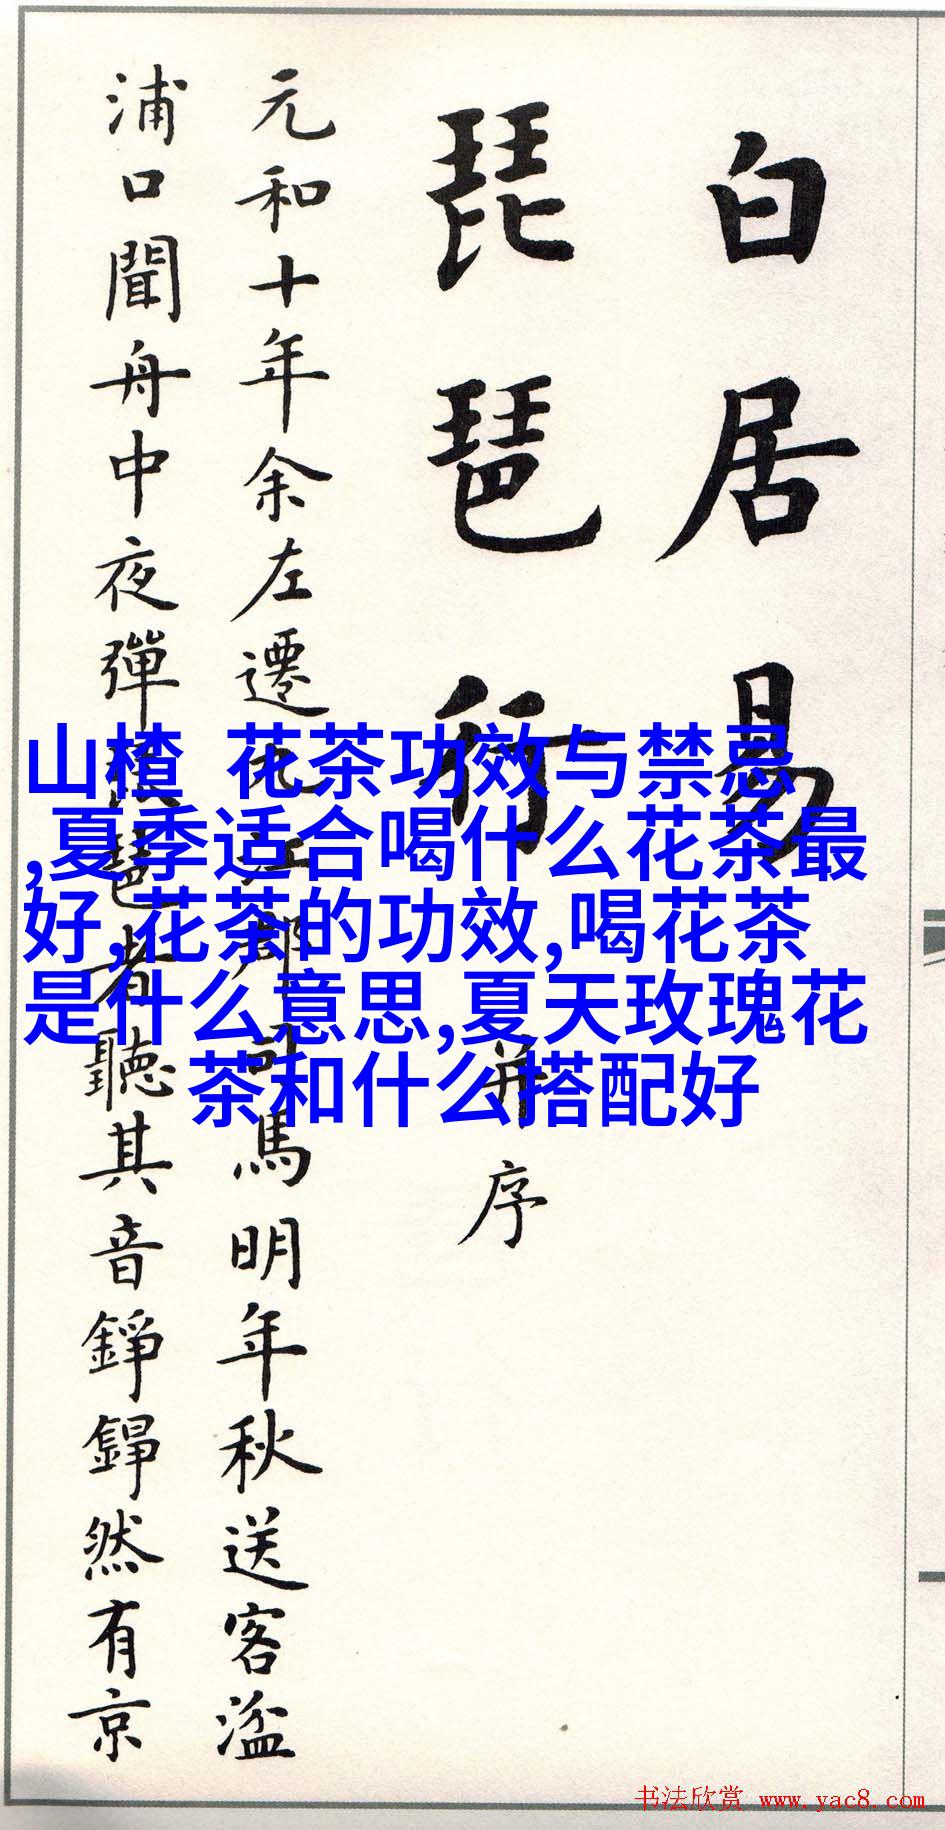 白居易
琵琶行
并序
元和十年余左遷九江郡司馬明年秋送客湓
浦口聞舟中夜彈琵琶者聽其音錚錚然有京
山楂 花茶功效与禁忌
,夏季适合喝什么花茶最
好,花茶的功效,喝花茶
是什么意思,夏天玫瑰花
茶和什么搭配好
书法欣赏 www.yac8.com